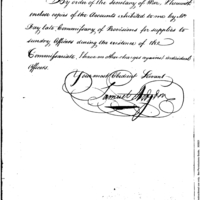 By order of the Secretary of War, I herewith
enclose copies of the Accounts exhibited to me by Mr
Fay late Commissary of Provisions for supplies to
sundry Officers during the existence of the
Commissariate, I have no other charges against individual
Officers.
Your most Obedient Servant
Samuel Hodgdon